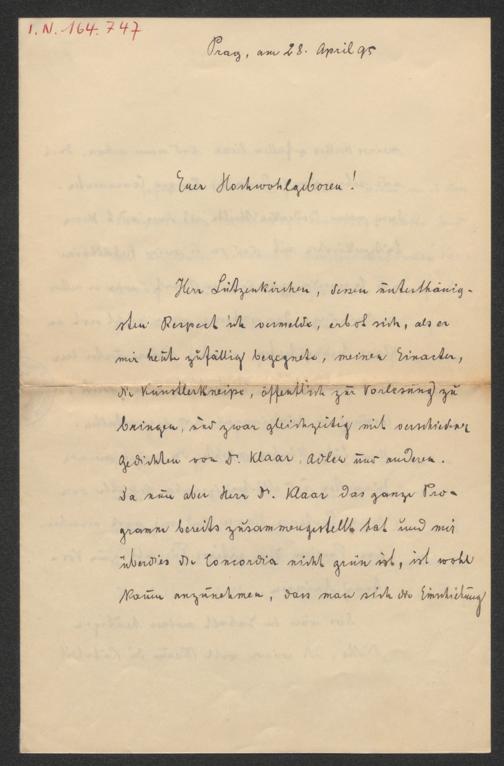 I.N. 164.747
Prag, am 28. April 95
Euer Hochwohlgeboren!
Herr Lützenkirchen, dessen unterthänig-
sten Respect ich vermelde, erbot sich, als er
mir heute zufällig begegnete, meinen Einacter,
die Künstlerkneipe, öffentlich zur Vorlesung zu
bringen, und zwar gleichzeitig mit verschiedenen
Gedichten von Dr. Klaar, Adler und anderen.
Da nun aber Herr Dr. Klaar das ganze Pro-
gramm bereits zusammengestellt hat und mir
überdies die Concordia nicht grün ist, ist wohl
kaum anzunehmen, dass man sich die Einschiebung